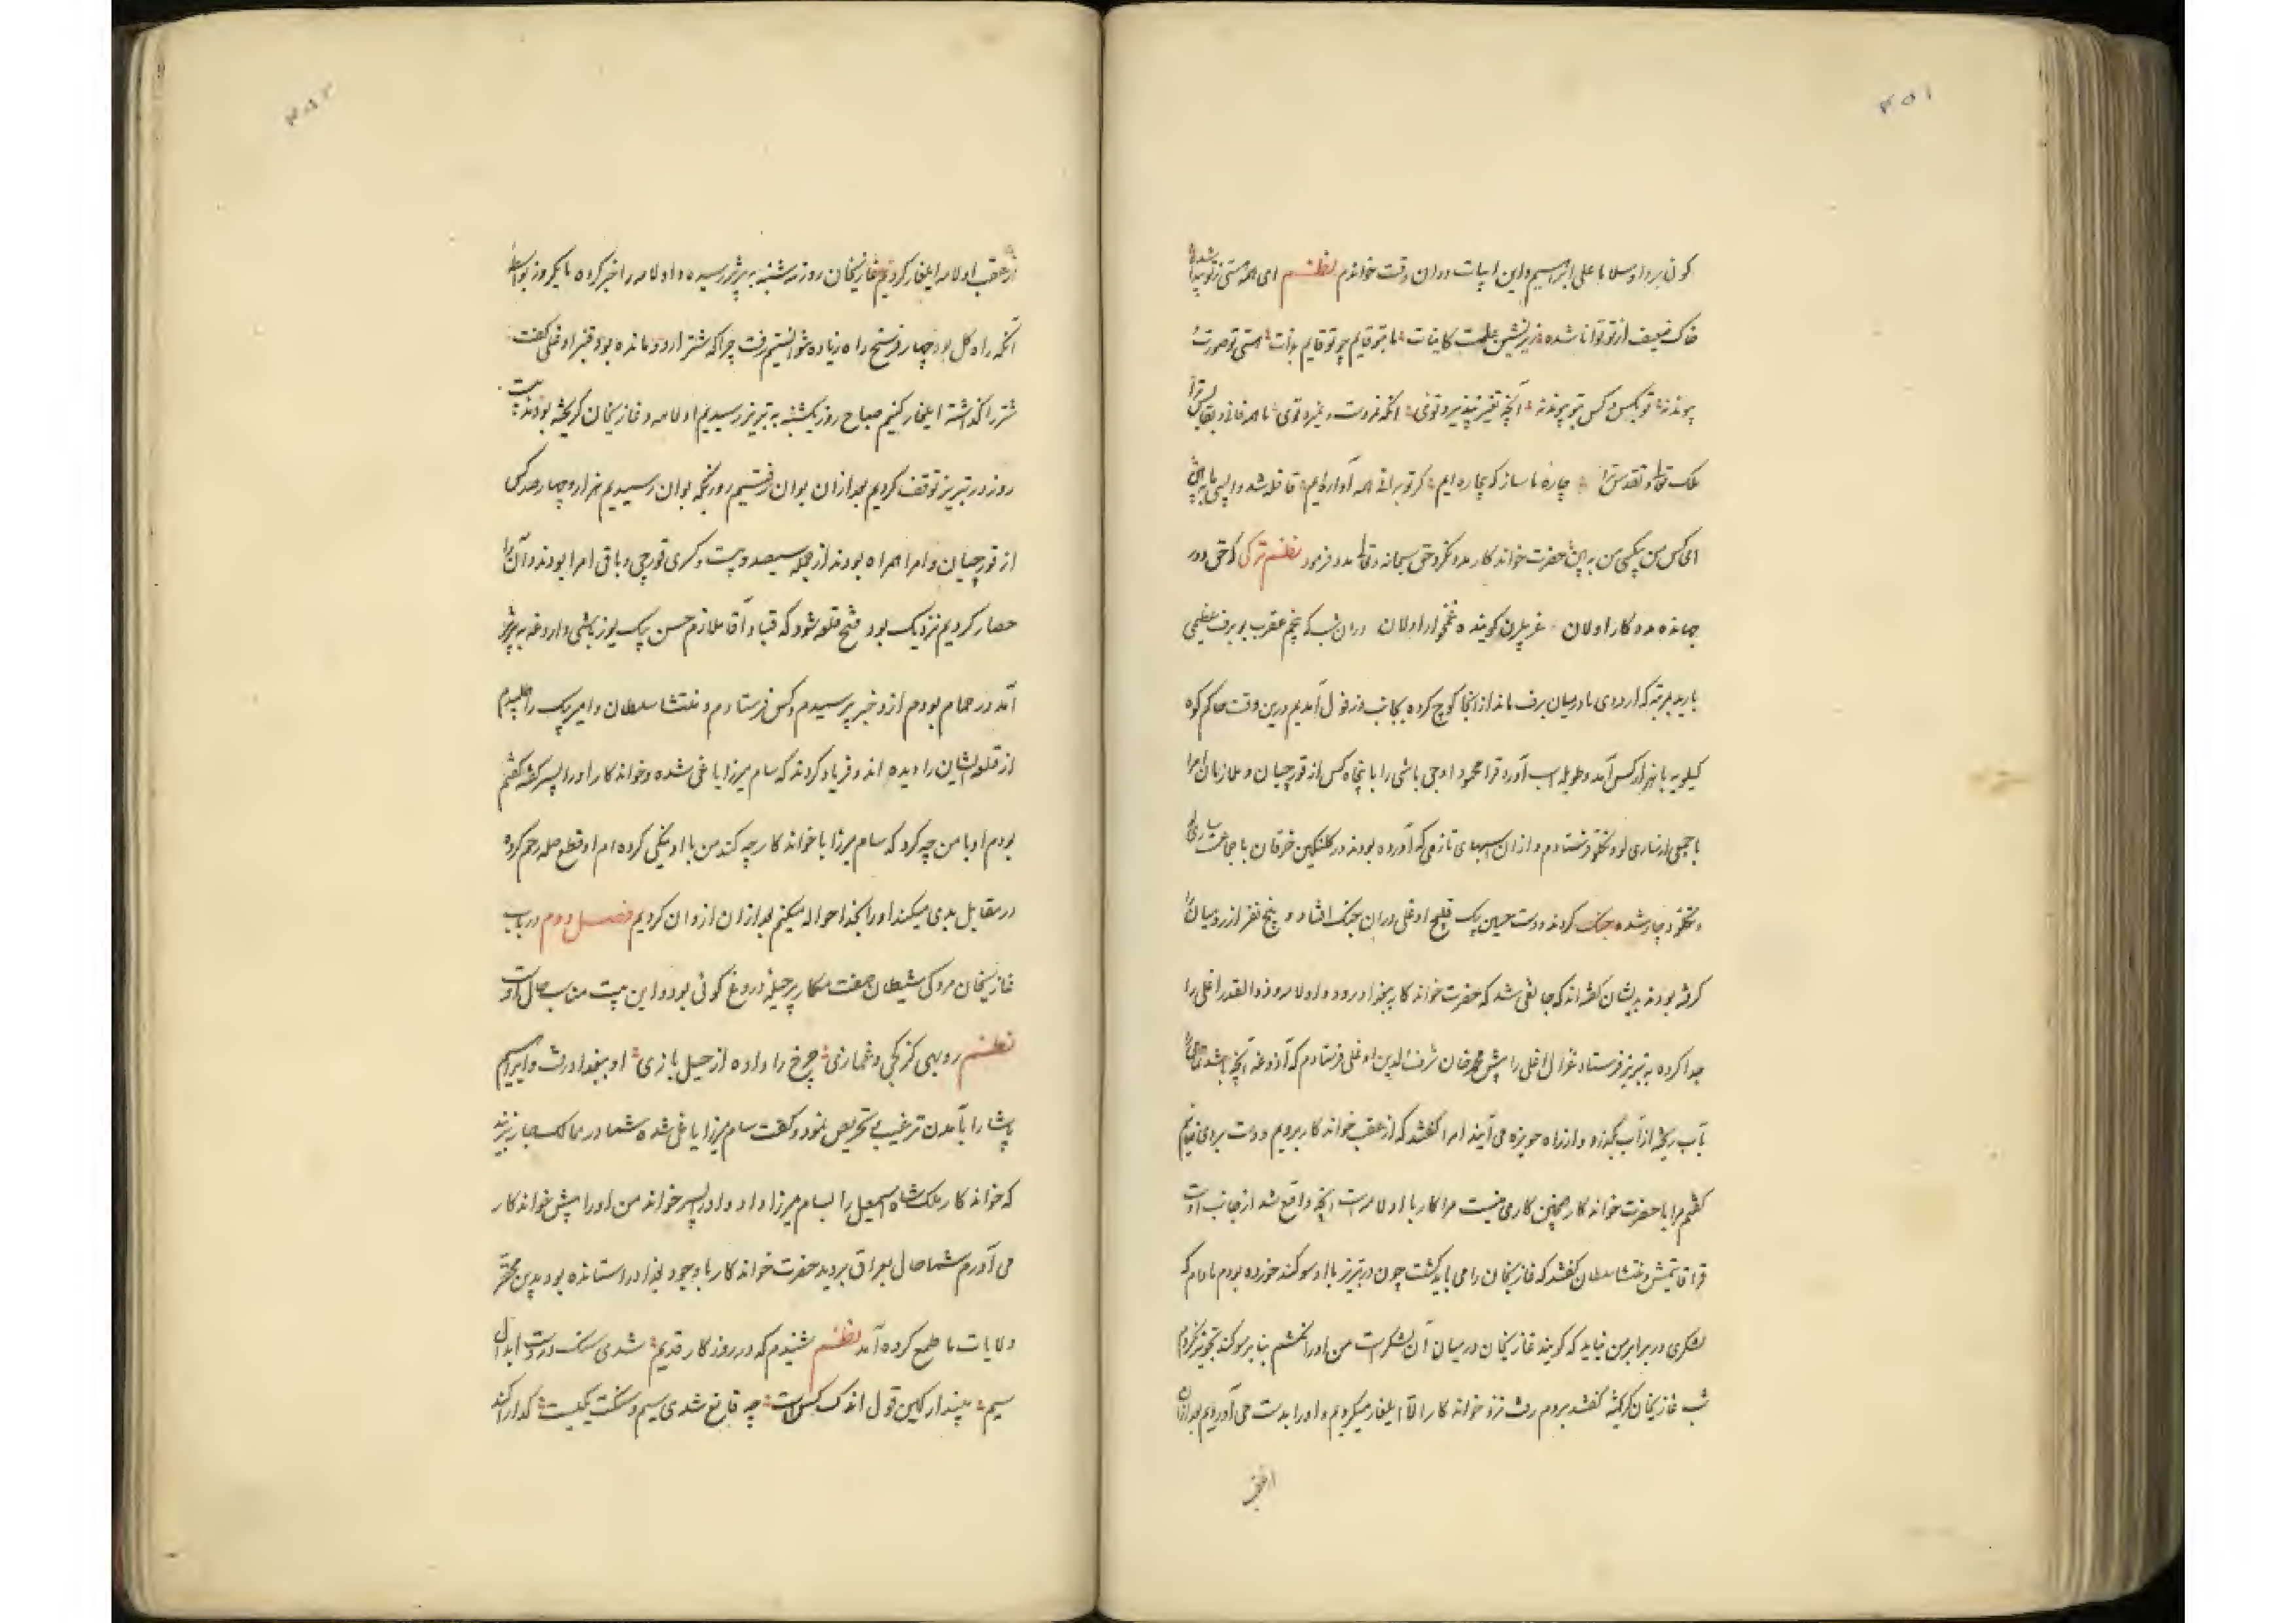 ۴۵۱
کونی بردا و سلاما علی ابراهیم و این ابیات دران وقت خواندم نظم ای همه هستی ز تو پیدا شده
خاک ضعیف از تو توانا شده زیر نشین علمت کاینات ما بتو قایم چو تو قایم بذات هستی تو صورت
پیوند نه تو بکس و کس بتو پیوند نه آنچه تغیر نپذیرد توئی آنکه نمردست و نمیرد توی ما همه فانی و بقا بس ترا
ملک تعالی و تقدس ترا چاره ما ساز که بیچاره ایم گر تو برانی همه آواره ایم قافله شد واپسی ما ببین
ای کس من بیکسی من ببین حضرت خواندکار مدد نکرد حق سبحانه و تعالی مدد فرمود نظم ترکی که حق دور
جهانده مددکار اولان غریبلرن کوینده غمخوار اولان دران شب که پنجم عقرب بود برف عظیمی
بارید بمرتبه که اردوی ما در میان برف ماند از انجا کوچ کرده بجانب دزفول آمدیم درین وقت حاکم کوه
کیلویه با هزار کس آمد و طویله اسب آورد قرا محمود اوجی باشی را با پنجاه کس از قورچیان و ملازمان امرا
با جمعی از ساری لو و تکلو فرستادم و ازان اسبهای تازی که آورده بودند در کلنکین خرقان با جماعت
و تکلو دچار شده جنک کردند و دست حسین بیک قلیج اوغلی دران جنک افتاد و پنج نفر از رومیان
کرفته بودند بدیشان کفته اند که جانقی شد که حضرت خواندکار ببغداد رود و اولامه و ذوالقدر اغلی را
جدا کرده به تبریز فرستاد غزال اغلی را پیش محمد خان شرف الدین اوغلی فرستادم که آذوغه آنچه باشد
بآب ریخته از آب بگذرد و از راه حویزه می آیند امرا کفتند که از عقب خواندکار برویم و دست بردی نماییم
کفتم مرا با حضرت خواندکار همچنین کار می نیست مرا کار با اولامه است آنچه واقع شد از جانب اوست
قراقایتمش و منتشا سلطان کفتند که غازیخان را می باید کشت چون در تبریز با او سوکند خورده بودم مادام که
لشکری در برابر من نیاید که کویند غازیخان در میان آن لشکر است من او را نکشم بنابر سوکند تجویز نکردم
شب غازیخان کریخته کفتند مردم رفت نزد خواندکار القا ایلغار میکردیم و او را بدست می آوردیم بعد ازان
از عقب
۴۵۲
از عقب اولامه ایلغار کردیم غازیخان روز سه شنبه به تبریز رسیده و اولامه را خبر کرده ما یکروز بواسطه
آنکه راه کل بود چهار فرسخ راه زیاده نتوانستیم رفت چرا که شتر اردو مانده بود قنبر اوغلی کفت
شتر را کذاشته ایلغار کنیم صباح روز یکشنبه به تبریز رسیدیم اولامه و غازیخان کریخته بودند بیست
روز در تبریز توقف کردیم بعد ازان بوان رفتیم روزیکه بوان رسیدیم هزار و چهارصد کس
از قورچیان و امرا همراه بودند از جمله سیصد و بیست و کسری قورچی و باقی امرا بودند وان را
حصار کردیم نزدیک بود فتح قلعه شود که قباد آقا ملازم حسن بیک یوزباشی و داروغه به تبریز
آمد در حمام بودم ازو خبر پرسیدم و کس فرستادم و منتشا سلطان و امیر بیک را طلبیدم
از قلعه ایشان را دیده اند و فریاد کردند که سام میرزا یاغی شده و خواندکار او را پسر کفته کفتم
بودم او با من چه کرد که سام میرزا با خواندکار چه کند من با او نیکی کرده ام او قطع صله رحم کرده
در مقابل بدی میکند او را بخدا حواله میکنم بعد ازان از وان کردیم فصل دوم در باب
غازیخان مردکی شیطان صفت مکار پر حیله دروغ کوئی بود و این بیت مناسب حال اوست
نظم روبهی کز کجی و غمازی چرخ را داده از حیل بازی او ببغداد رفت و ابراهیم
پاشا را بآمدن ترغیب و تحریص نمود و کفت سام میرزا یاغی شده شما در ممالک جار زنید
که خواندکار ملک شاه اسمعیل را بسام میرزا داد و او را پسر خواند من او را پیش خواندکار
می آورم شما حال بعراق بروید حضرت خواندکار با وجود بغداد را ستانده بود بدین محقر
ولایات ما طمع کرده آمد نظم شنیدم که در روزکار قدیم شدی سنک در دست ابدال
سیم مپندار کاین قول اندک کس است چو قانع شدی سیم و سنکت یکیست کدا را کند